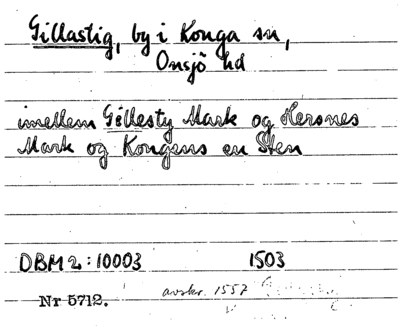 Gillastig, by i Konga sn,
Onsjö hd
imellem Gillesty Mark og Hersnes
Mark og Kongens en Sten
DBM 2:10003 1503
Nr 5712. avskr. 1557